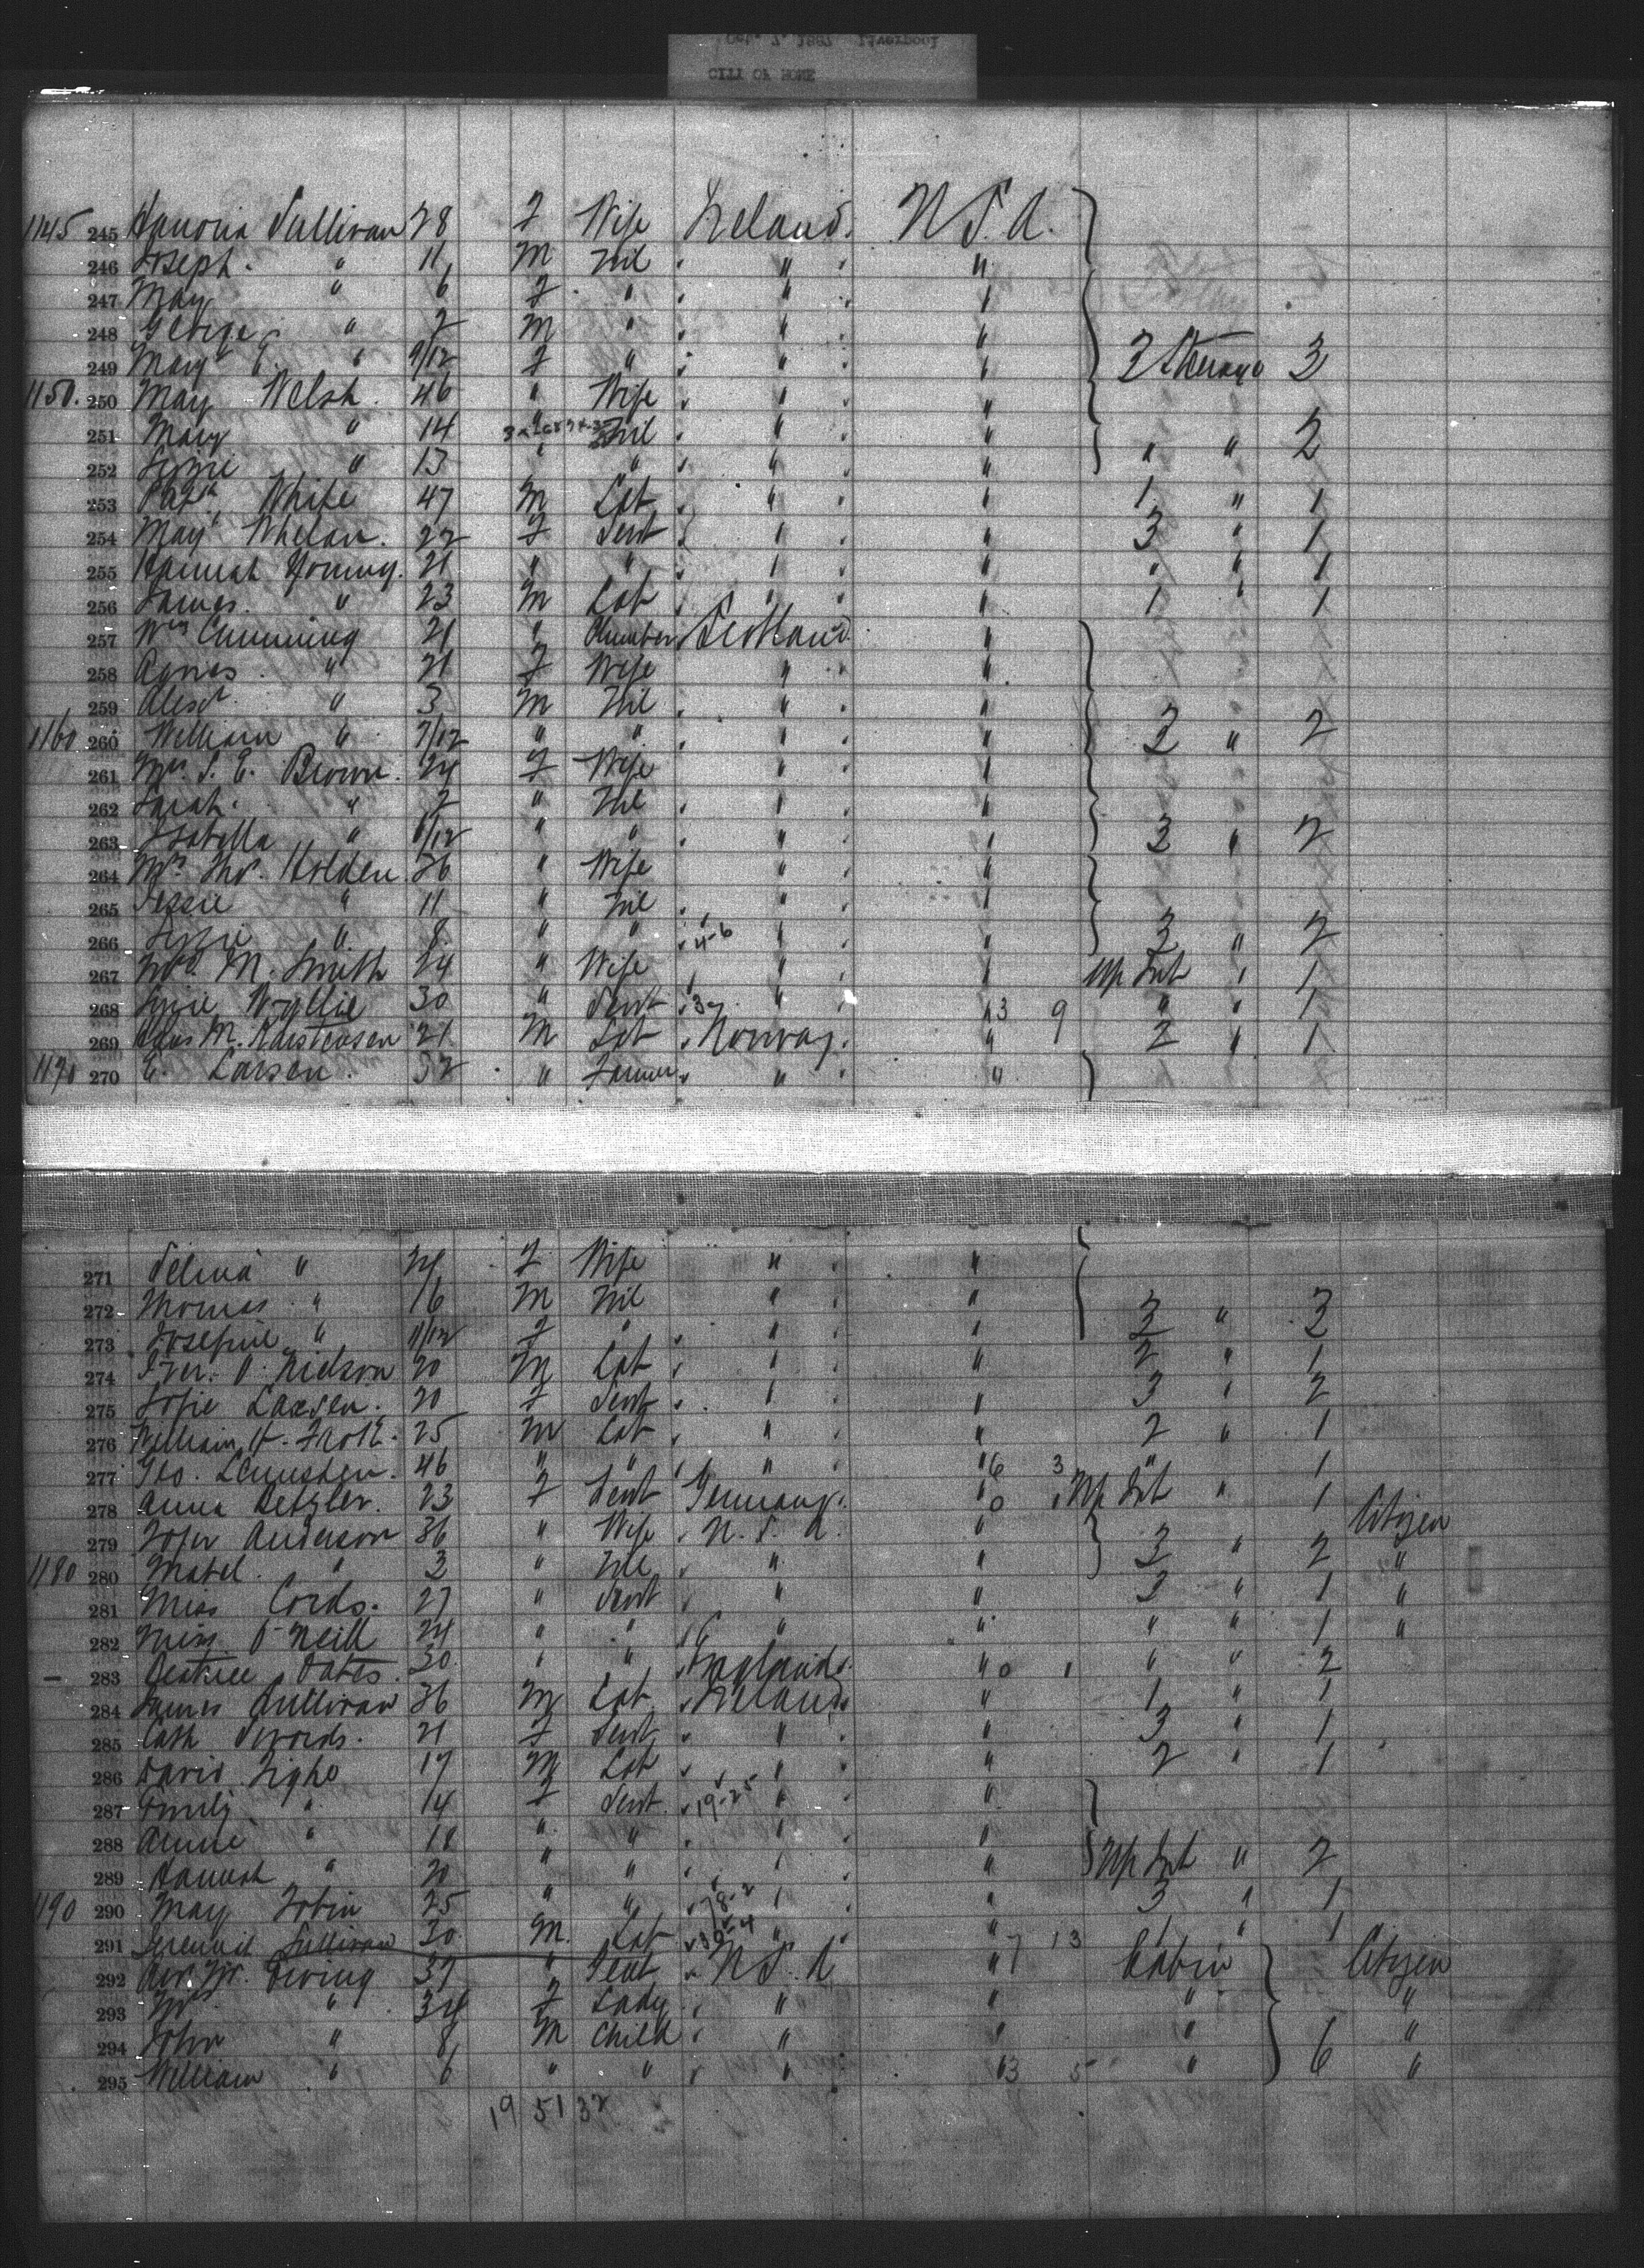 CITY OF ROME
1145 245 Hanoria Sullivan 28 F Wife Ireland. U.S.A.
246 Joseph. " 11 M Nil " "
247 May " 6 F " " "
248 George " 2 M " " "
249 Mary " 9/12 F " " " 3 Steerage 3
1150. 250 May Welsh. 46 " Wife " "
251 Mary " 14 " Nil " "
252 Lizzie " 13 " " " " " " 2
253 Patk White 47 M Lab " " 1 " 1
254 Mary Whelan. 22 F Sevt " " 3 " 1
255 Hannah Young. 21 " " " " " " 1
256 James. " 23 M Lab " " 1 " 1
257 Wm Cumming 21 " Plumber Scotland "
258 Agnes " 21 F Wife " "
259 Alexr. " 3 M Nil " "
1160 260 William " 7/12 " " " " 3 " 2
261 Mrs. S. E. Brown. 24 F Wife " "
262 Sarah. " 2 " Nil " "
263 Isabella " 6/12 " " " " 3 " 2
264 Mrs. Thos. Holden 36 " Wife " "
265 Jessie " 11 " Nil " "
266 Lizzie " 8 " " 4-6 " " 3 " 2
267 Mrs. M. Smith 24 " Wife " " Up Int " 1
268 Lizzie Wyllie 30 " Sevt " " 3 9 " " 1
269 M. Karstensen 21 M Lab Norway. " 2 " 1
1170 270 E. Larsen. 32 " Farmer " "
271 Selma " 24 F Wife " "
272 Thomas " 16 M Nil " "
273 Josefine " 11/12 F " " " 3 " 3
274 Iver. O. Nielson 20 M Lab " " 2 " 1
275 Sofie Larsen. 20 F Sevt " " 3 " 2
276 William H. 25 M Lab " " 2 " 1
277 Geo. 46 " " " " 6 3 " " 1
278 Anna Detzler. 23 F Sevt Germany. " 0 Up Int " 1
279 Anderson 36 " Wife U.S.A. " 3 " 2 Citizen
1180 280 Mabel. " 3 " Nil " " "
281 Miss Cords. 27 " Sevt " " 3 " 1 "
282 Miss O'Neill 24 " " " " " " 1 "
283 Beatrice Oates. 30 " " England. " 0 " " 2
284 James Sullivan 36 M Lab Ireland " 1 " 1
285 Cath Swords. 21 F Sevt " " 3 " 1
286 David Tighe 17 M Lab " " 2 " 1
287 Emily " 14 F Sevt 19-25 " "
288 Annie " 18 " " " "
289 Hannah " 20 " " " " Up Int " 2
1190 290 May Tobin 25 " " " " 3 " 1
291 Jeremih Sullivan 30 M. Lab " " 7 13 1 " 1
292 37 " Gent U.S.A " Cabin Citizen
293 Mrs. " 34 F Lady " " " "
294 John " 8 M Child " " " "
295 William " 6 " " " " 3 5 " 6 "
19 51 32